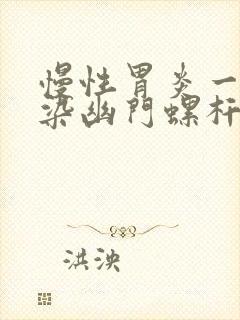 慢性胃炎一
染幽門螺杆
洪泱